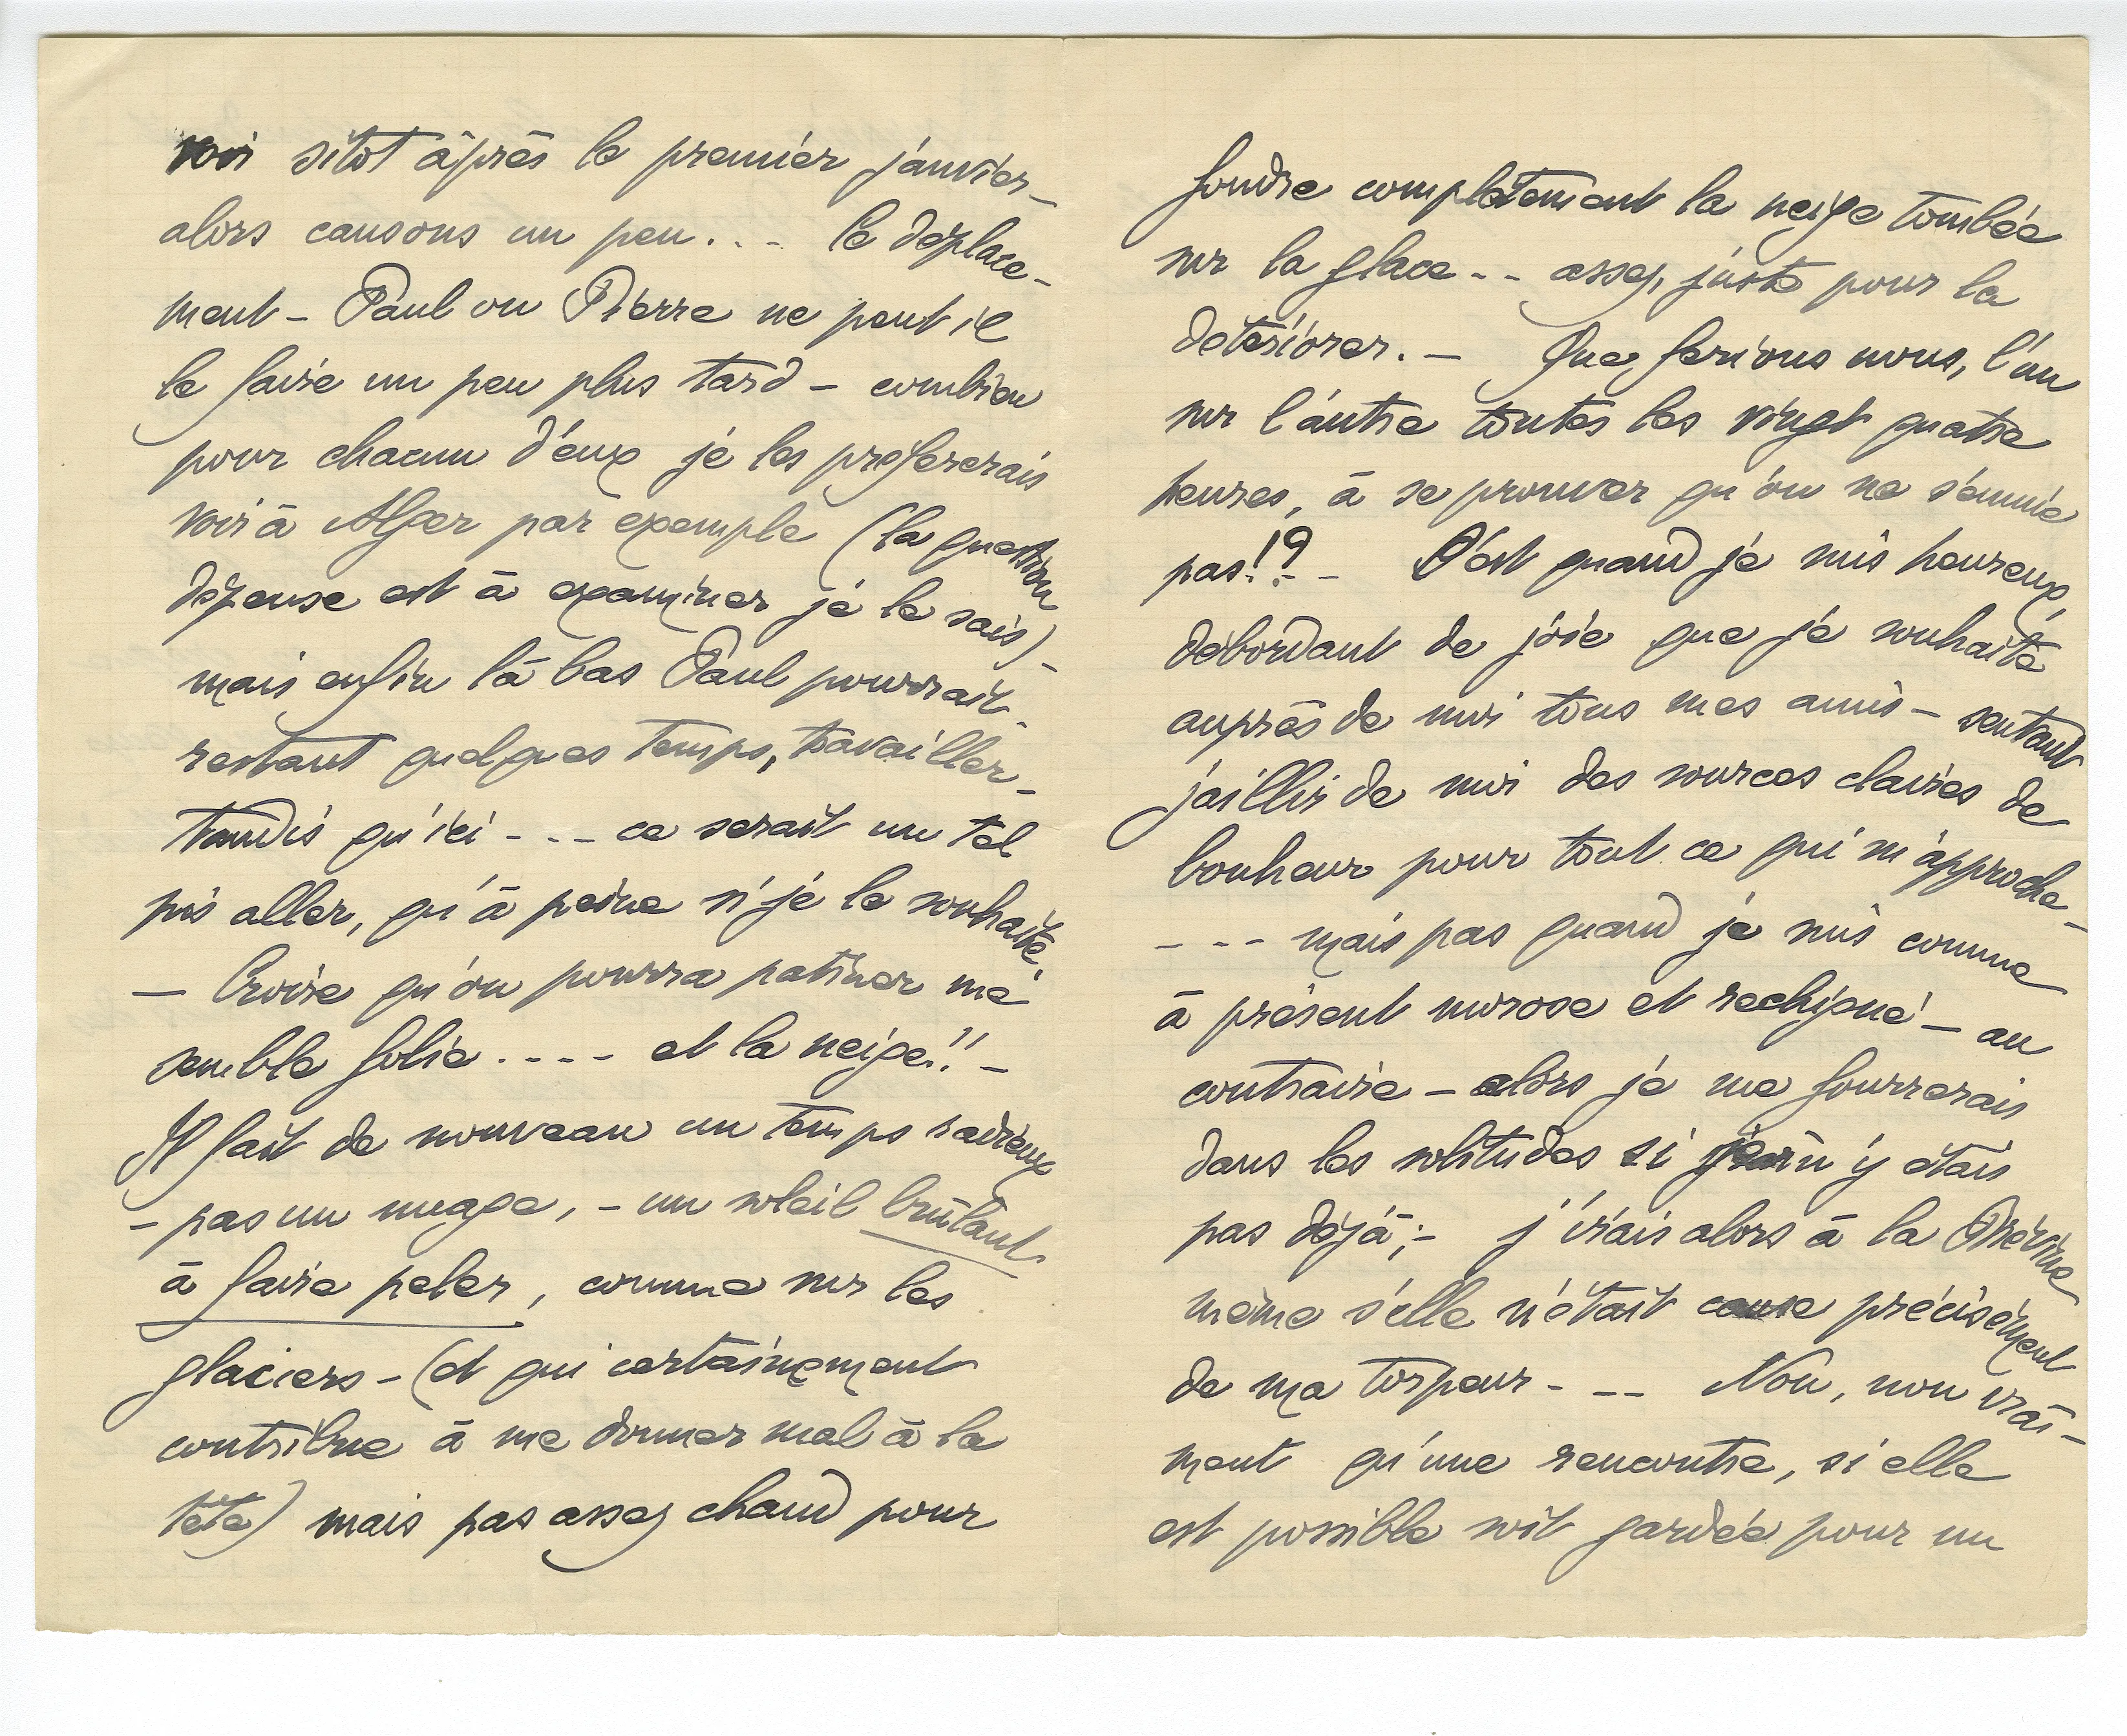 voir sitot après le premier janvier –
alors causons un peu . . – le déplace-
ment – Paul ou Pierre ne peut il
le faire un peu plus tard – combien
pour chacun d'eux je les prefererais
voir à Alger par exemple (la question
dépense est à examiner je le sais) –
mais enfin là bas Paul pourrait –
restant quelques temps, travailler –
tandis qu'ici - - – ce serait un tel
pis aller, qu'à peine si je le souhaite.
– Croire qu'on pourra patiner me
semble folie . . - - et la neige!! –
Il fait de nouveau un temps radieux
– pas un nuage, – un soleil brûlant
à faire peler, comme sur les
glaciers – (et qui certainement
contribue à me donner mal à la
tête) mais pas assez chaud pour
fondre complètement la neige tombée
sur la glace - - assez, juste pour la
détériorer. – Que ferions nous, l'un
sur l'autre toutes les vingt quatre
heures, à se prouver qu'on ne s'ennuie
pas!? - – C'est quand je suis heureux,
débordant de joie que je souhaite
auprès de moi tous mes amis – sentant
jaillir de moi des sources claires de
bonheur pour tout ce qui m'approche –
- - - mais pas quand je suis comme
à présent morose et rechigné – au
contraire – alors je me fourrerais
dans les solitudes si je n'y étais
pas déjà ; – j'irais alors à la Brévine
même s'elle n'était cause précisément
de ma torpeur - – – Non, non vrai-
ment qu'une rencontre, si elle
est possible soit gardée pour un